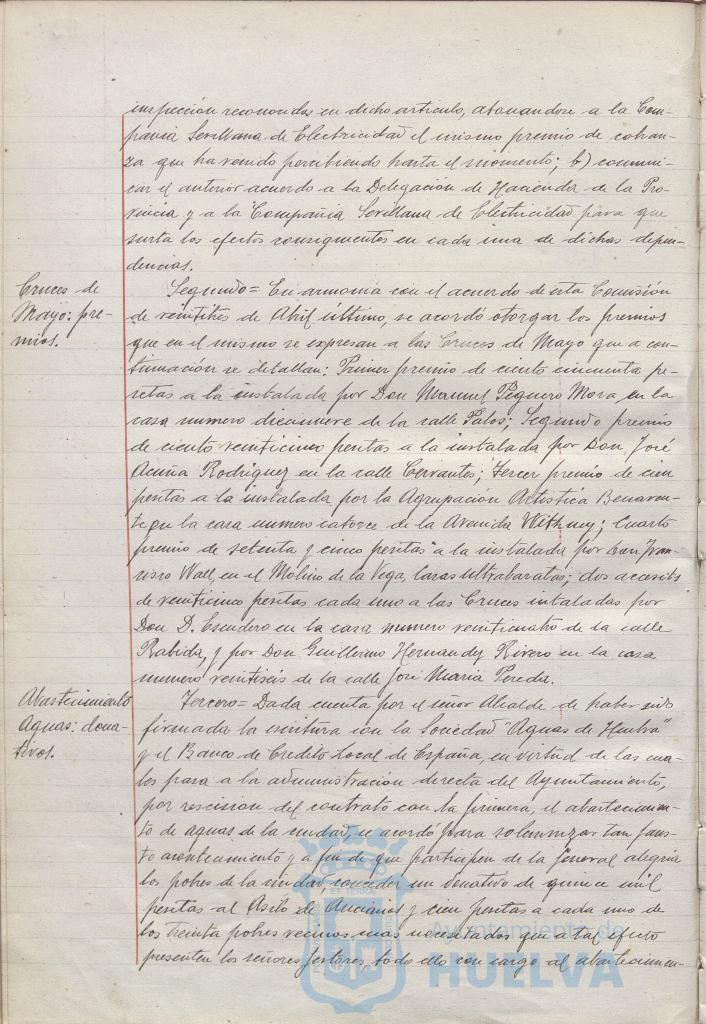 inspección reconocidas en dicho artículo, abonandose a la Com-
pañia Sevillana de Electricidad el mismo premio de cobran-
za que ha venido percibiendo hasta el momento; b) comuni-
car el anterior acuerdo a la Delegación de Hacienda de la Pro-
vincia y a la Compañia Sevillana de Electricidad para que
surta los efectos consiguientes en cada una de dichas depen-
dencias.
Cruces de
Mayo: pre-
mios.
Segundo = En armonia con el acuerdo de esta Comisión
de veintitres de Abril último, se acordó otorgar los premios
que en el mismo se expresan a las Cruces de Mayo que a con-
tinuación se detallan: Primer premio de ciento cincuenta pe-
setas a la instalada por Don Manuel Peguero Mora en la
casa numero diecinueve de la calle Palos; Segundo premio
de ciento veinticinco pesetas a la instalada por Don José
Acuña Rodriguez en la calle Cervantes; Tercer premio de cien
pesetas a la instalada por la Agrupación Artistica Benaven-
te en la casa numero catorce de la Avenida Withney; Cuarto
premio de setenta y cinco pesetas a la instalada por Don Fran-
cisco Wall, en el Molino de la Vega, Casas ultrabaratas; dos accesits
de veinticinco pesetas cada uno a las Cruces intaladas por
Don D. Escudero en la casa numero veinticuatro de la calle
Rabida, y por Don Guillermo Hernandez Rivero en la casa
numero veintiseis de la calle José Maria Pereda.
Abastecimiento
Aguas: dona-
tivos.
Tercero = Dada cuenta por el señor Alcalde de haber sido
firmada la escritura con la Sociedad "Aguas de Huelva"
y el Banco de Credito Local de España, en virtud de las cua-
les pasa a la administración directa del Ayuntamiento,
por rescision del contrato con la primera, el abastecimien-
to de aguas de la ciudad, se acordó para solemnizar tan faus-
to acontecimiento y a fin de que participen de la general alegria
los pobres de la ciudad, conceder un donativo de quince mil
pesetas al Asilo de Ancianos y cien pesetas a cada uno de
los treinta pobres vecinos mas necesitados que a tal efecto
presenten los señores Gestores, todo ello con cargo al abastecimien-
Ayuntamiento de
HUELVA